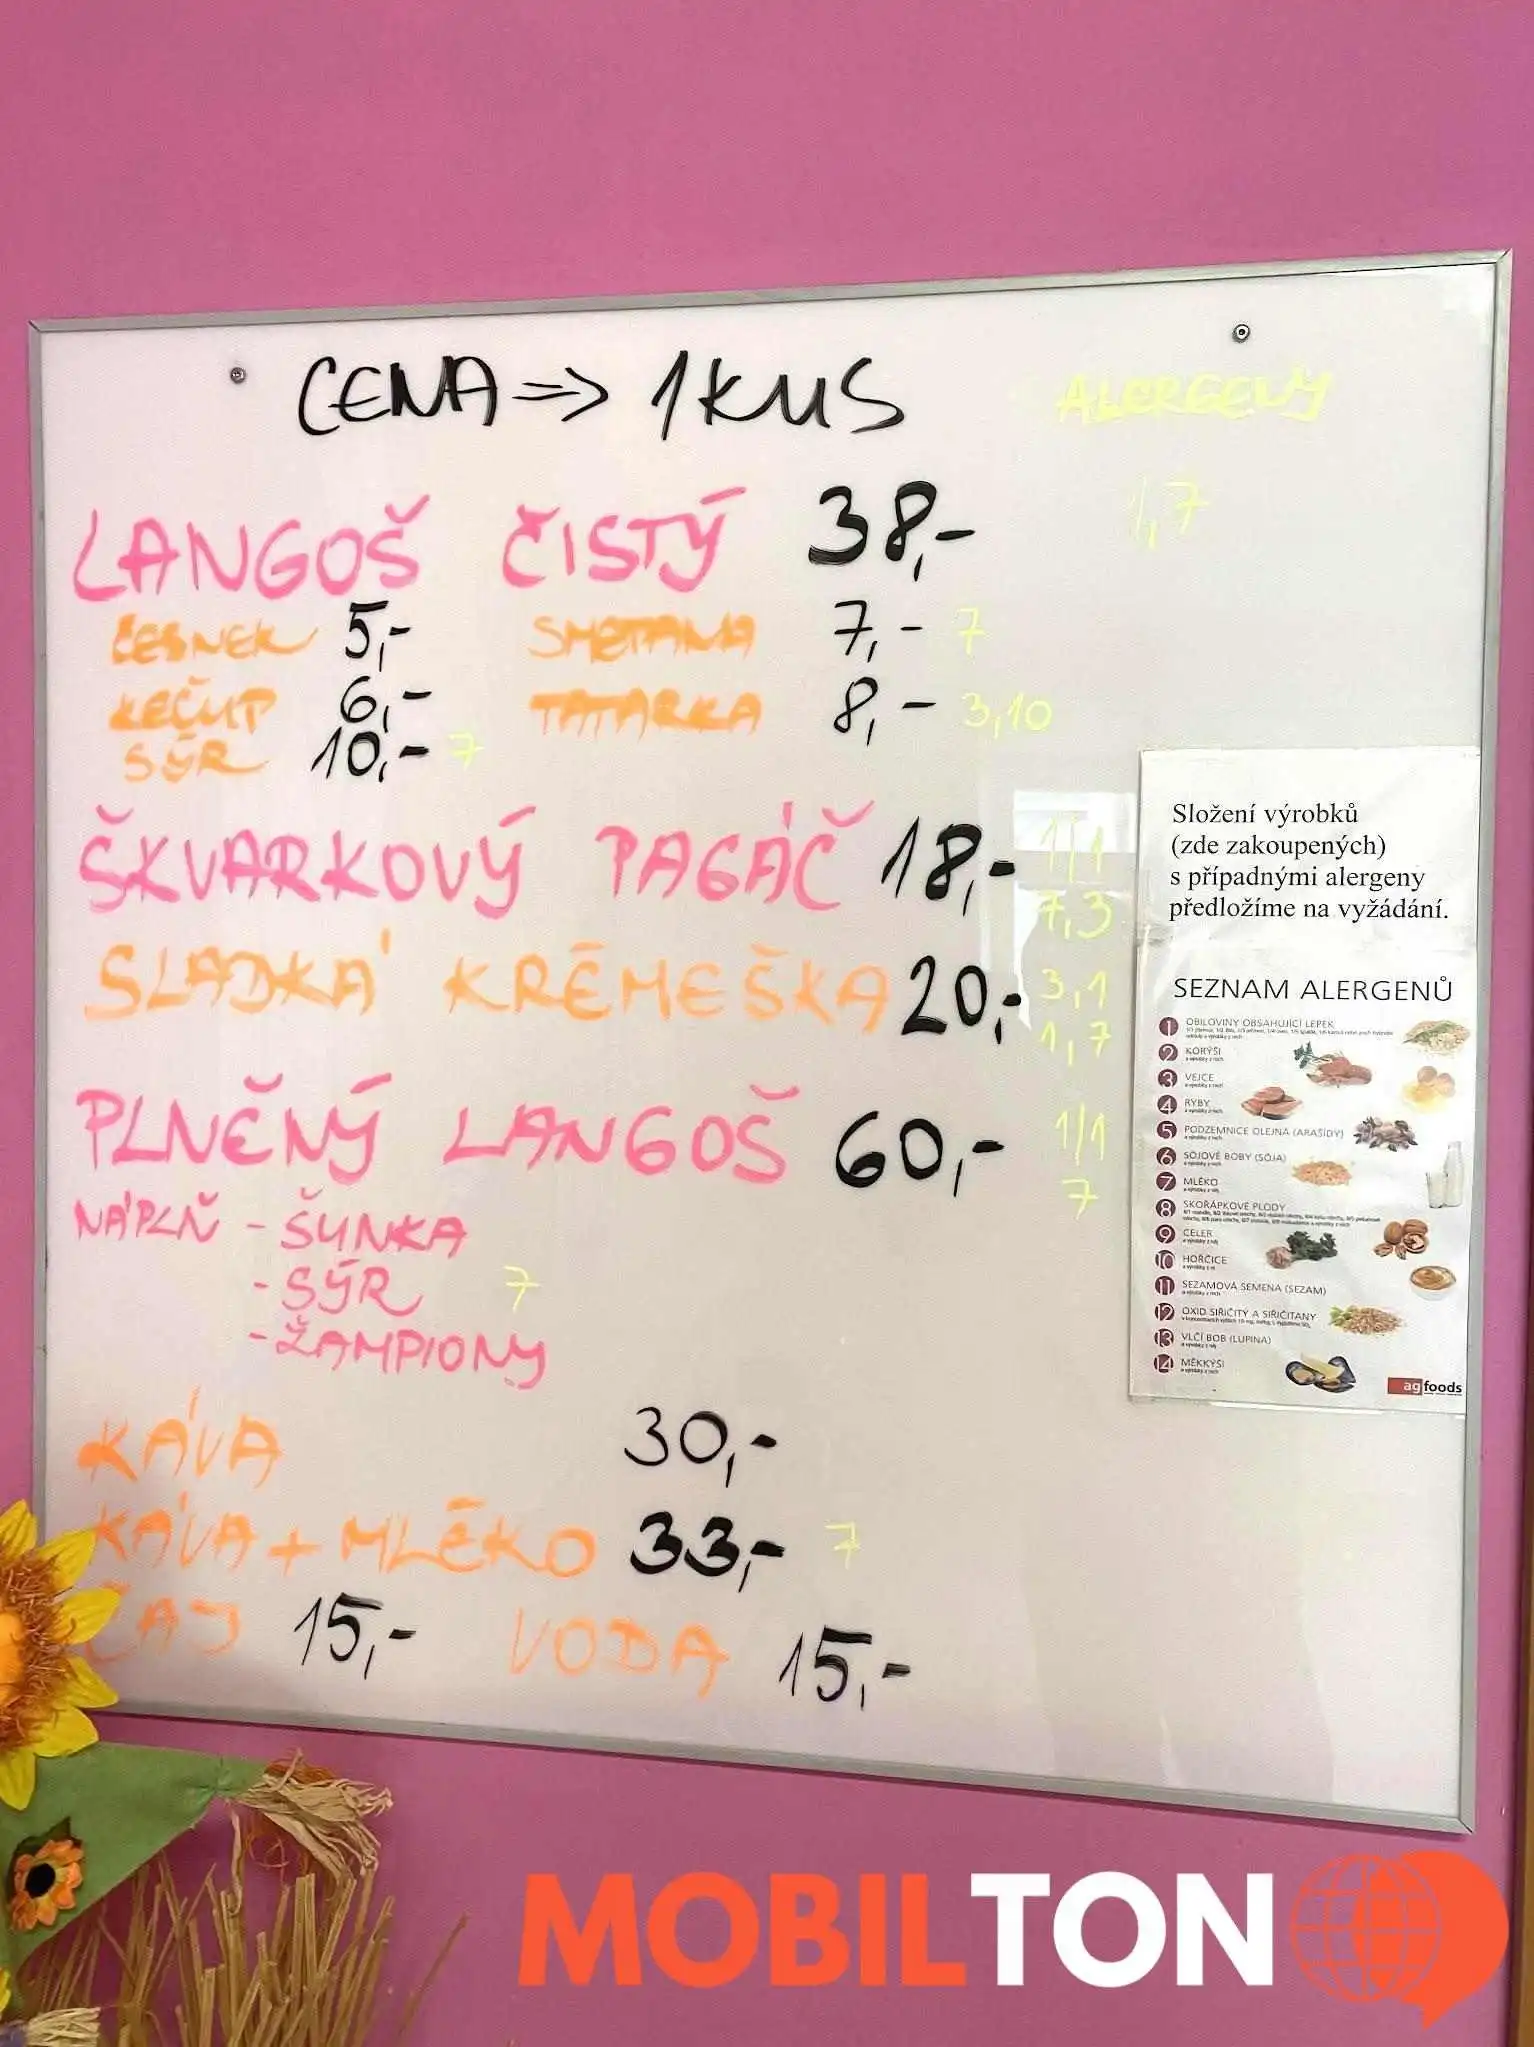 CENA => 1 KUS ALERGENY
LANGOŠ ČISTÝ 38,- 1,7
ČESNEK 5,- SMETANA 7,- 7
KEČUP 6,- TATARKA 8,- 3,10
SÝR 10,- 7
ŠKVARKOVÝ PAGÁČ 18,- 1/1
7,3
SLADKÁ KRÉMEŠKA 20,- 3,1
1,7
PLNĚNÝ LANGOŠ 60,- 1/1
7
NÁPLŇ - ŠUNKA
- SÝR 7
- ŽAMPIONY
KÁVA 30,-
KÁVA + MLÉKO 33,- 7
ČAJ 15,- VODA 15,-
Složení výrobků
(zde zakoupených)
s případnými alergeny
předložíme na vyžádání.
SEZNAM ALERGENŮ
1 OBILOVINY OBSAHUJÍCÍ LEPEK
2 KORÝŠI
a výrobky z nich
3 VEJCE
a výrobky z nich
4 RYBY
a výrobky z nich
5 PODZEMNICE OLEJNÁ (ARAŠÍDY)
a výrobky z nich
6 SÓJOVÉ BOBY (SÓJA)
a výrobky z nich
7 MLÉKO
a výrobky z něj
8 SKOŘÁPKOVÉ PLODY
9 CELER
a výrobky z něj
10 HOŘČICE
a výrobky z ní
11 SEZAMOVÁ SEMENA (SEZAM)
a výrobky z nich
12 OXID SIŘIČITÝ A SIŘIČITANY
13 VLČÍ BOB (LUPINA)
a výrobky z něj
14 MĚKKÝŠI
a výrobky z nich
ag foods
MOBILTON